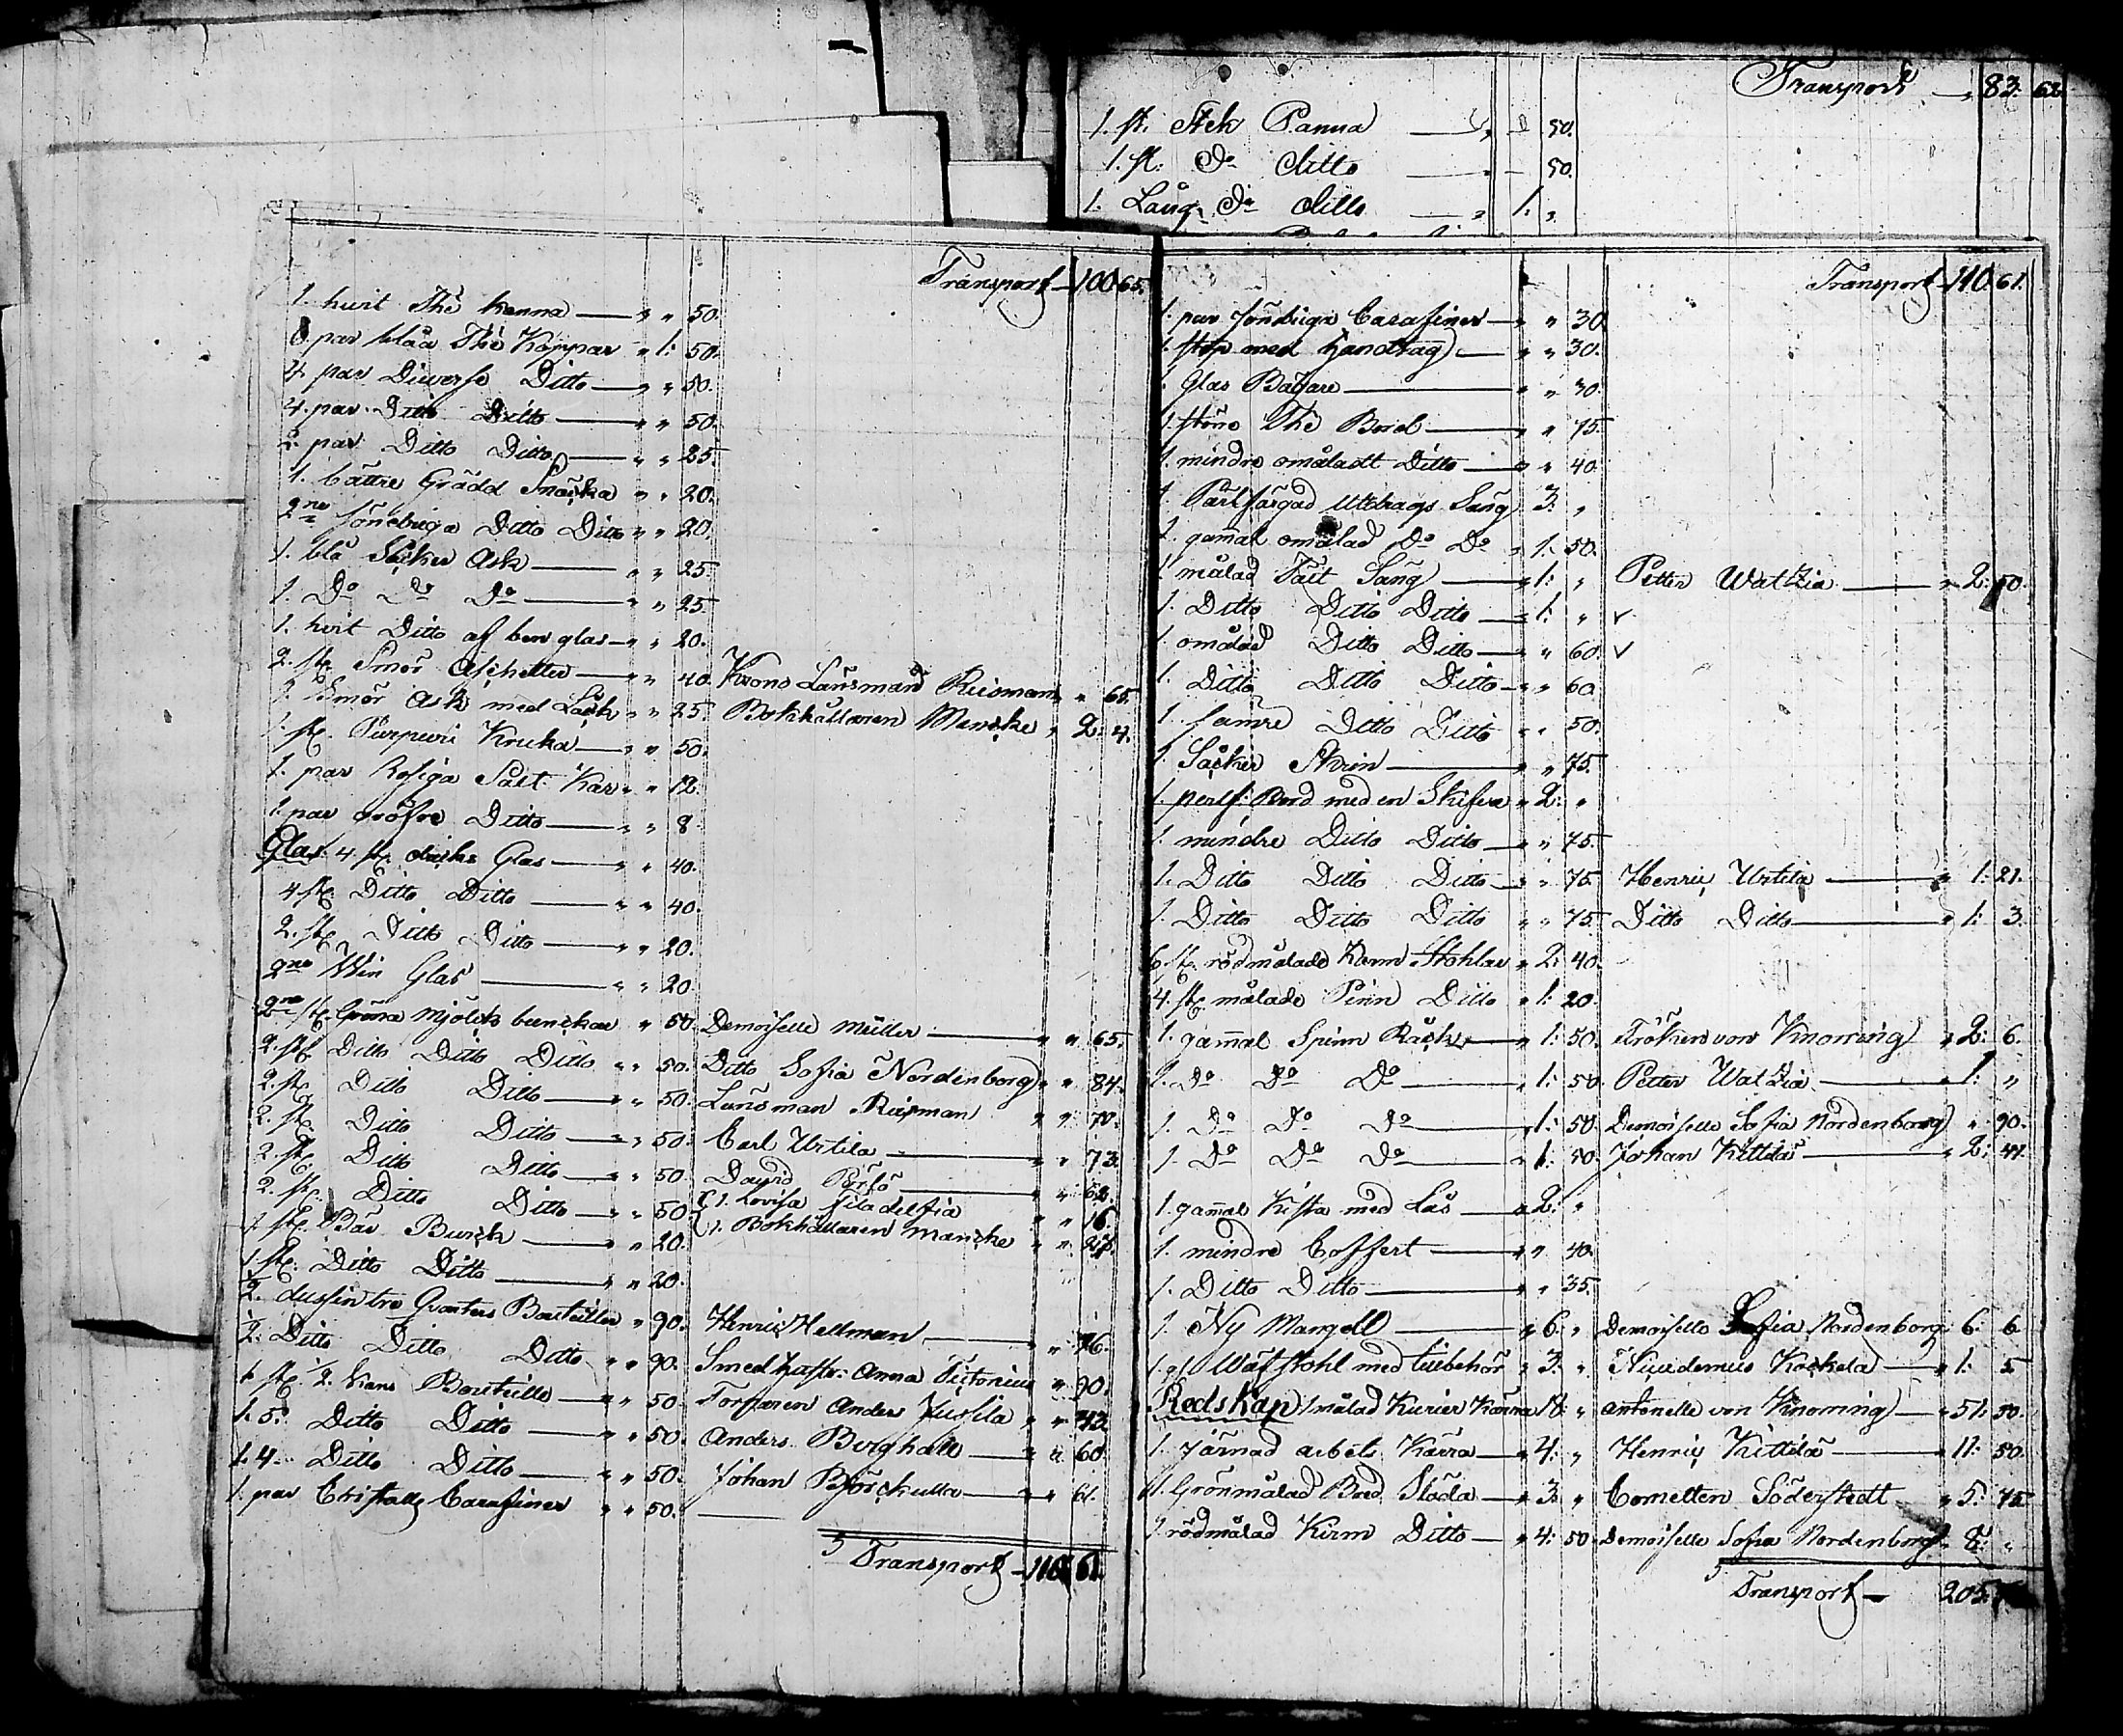 Transport — 83. 62.
1. st. Stek Panna — " " 50.
1. st. Do ditto — " 50.
1. Lång Do ditto — " 1. "
Transport — 100 65.
1. hvit The kanna — " " 50.
par blåa The Koppar " 1: 50.
4. par Diverse Ditto — " " 50.
4. par Ditto Ditto — " " 50.
2. par Ditto Ditto — " " 25.
1. bättre Grädd Snäcka " " 20.
2ne sönbriga Ditto Ditto " " 20.
1. blå Såcker Ask — " " 25.
1. Do Do Do — " " 25.
1. hvit Ditto af ben glas — " " 20.
2. st. Smör Aschetter — " " 40. Krono Länsmand Reisman " " 65.
1. Smör Ask med Låck " " 25. Bokhållaren Manske " 2: 4.
1. st. Kruka — " " 50.
1. par Salt Kar " " 12.
1. par gröfre Ditto — " " 8.
Glas. 4 st. Glas — " " 40.
4 st. Ditto Ditto — " " 40.
2. st. Ditto Ditto — " " 20.
2ne Win Glas — " " 20.
2ne st. Gröna Mjölck bunckar " 50. Demoiselle Müller — " " 65.
2. st. Ditto Ditto Ditto " " 50. Ditto Sofia Nordenborg " " 84.
2. st. Ditto Ditto — " " 50. Länsman Reisman " " 70.
2. st. Ditto Ditto — " " 50. Carl Urtila — " " 73.
2. st. Ditto Ditto — " " 50. David — " " 62.
2. st. Ditto Ditto — " " 50. 1. Lovisa filadelfia " " 16.
1 st. Bär Burck — " " 20. 1. Bokhållaren Manske " " 27.
1 st. Ditto Ditto — " " 20.
1/2 dussin tre Qvarters Bouteiller " 90. Henric Hellman — " " 76.
1/2 Ditto Ditto Ditto " " 90. Smed hustr: Anna " 90.
1 st. 1/2 Kans Bouteille — " " 50. Torparen Anders Jussila " "
1. 5. Ditto Ditto — " " 50. Anders Berghäll — " " 60.
1. 4. Ditto Ditto — " " 50. Johan Björckulla — " " 61.
1. par Christalls Carafiner " " 50. —
Transport — 110 61.
Transport — 110. 61.
1. par sönbriga Carafiner — " " 30.
1. stop med handtag — " " 30.
1. Glas Bägare — " " 30.
1. större The Bord — " " 75.
1. mindre omåladt Ditto — " " 40.
1. Pärlfärgad Utdrags Säng 3. "
1. gammal omålad Do Do " 1: 50.
1. målad Tält Säng — " 1: " Petter Watzia — " 2: 50.
1. Ditto Ditto Ditto — " 1: " ✓
1. omålad Ditto Ditto — " " 60. ✓
1. Ditto Ditto Ditto — " " 60.
1. sämre Ditto Ditto " " 50.
1. Såcker Skrin — " " 75.
1. perlf: Bord med en Skifva " 2: "
1. mindre Ditto Ditto — " " 75.
1. Ditto Ditto Ditto — " " 75. Henric Urtila — " 1: 21.
1. Ditto Ditto Ditto " " 75. Ditto Ditto — " 1: 3.
6. st. rödmålade Karm Stohlar " 2: 40.
4. st. målade Pinn Ditto " 1: 20.
1. gammal Spinn Råck — " 1: 50. Fröken von Knorring " 2: 6.
1. Do Do Do — " 1: 50. Petter Watzia — " 1: "
1. Do Do Do — " 1: 50. Demoiselle Sofia Nordenborg " 90.
1. Do Do Do — " 1. 50. Johan Kittilä — " 2: 41.
1. gammal Kista med Lås — " 2: "
1. mindre Coffert — " " 40.
1. Ditto Ditto — " " 35.
1. Ny Mangell — " 6: " Demoiselle Sofia Nordenborg 6: 6.
1. gl Wäfstohl med tilbehör " 3: " Nicodemus Kockela — " 1: 5
Redskap 1 målad Kurier Kärra 18: " Antonette von Knorring — " 51: 50.
1. Järnad arbets Kärra — " 4: " Henric Kittilä — " 11: 50.
1. Grönmålad Bred Släda — " 3. " Cornetten Söderstedt " 5: 75.
1. rödmålad Kirm Ditto — " 4: 50 Demoiselle Sofia Nordenborg " 8: "
Transport — 205.